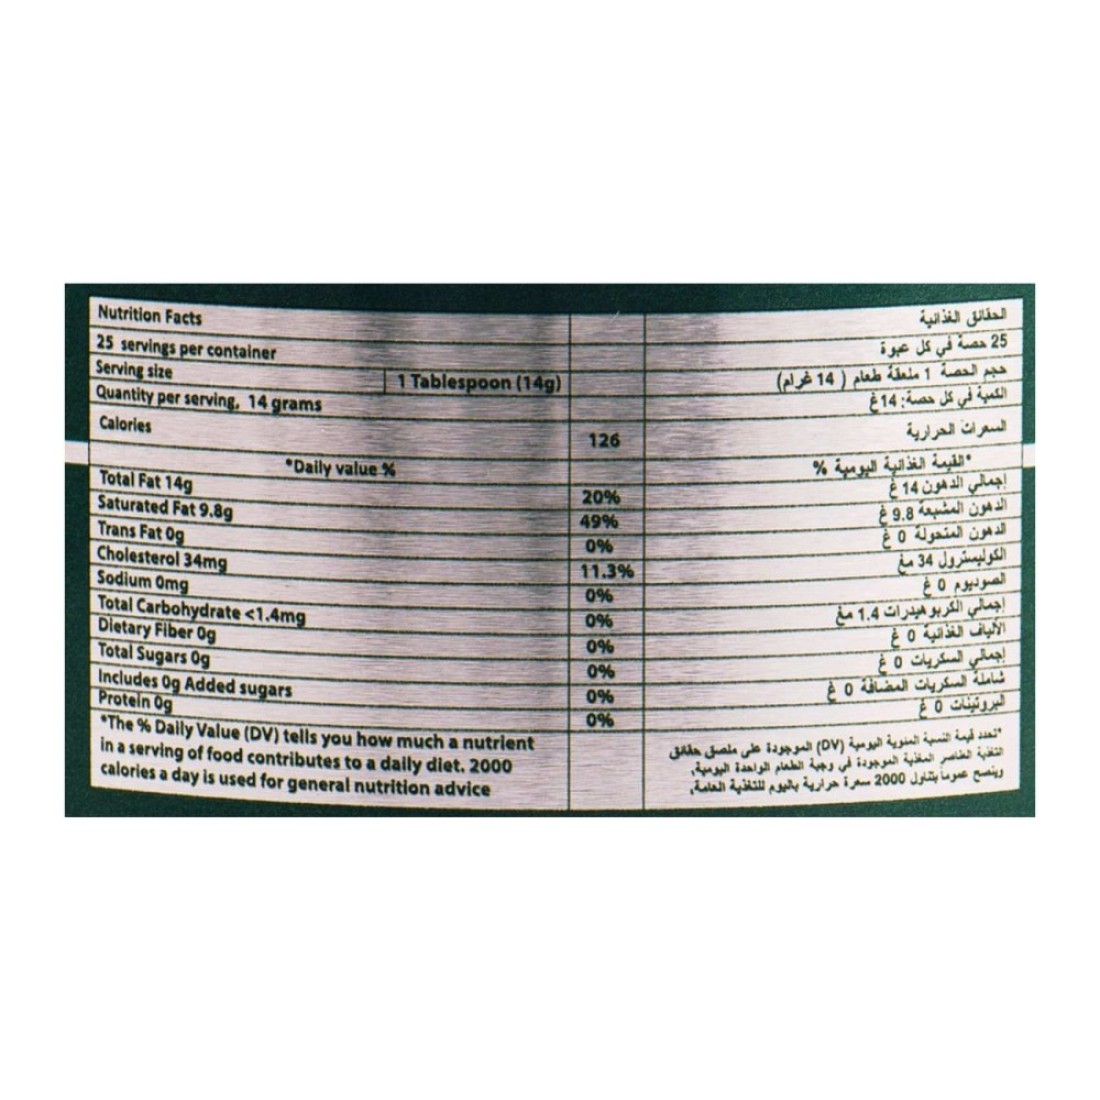 Nutrition Facts
الحقائق الغذائية
25 servings per container
25 حصة في كل عبوة
Serving size 1 Tablespoon (14g)
حجم الحصة 1 ملعقة طعام ( 14 غرام)
Quantity per serving, 14 grams
الكمية في كل حصة: 14غ
Calories 126
السعرات الحرارية
*Daily value %
*القيمة الغذائية اليومية %
Total Fat 14g 20%
إجمالي الدهون 14 غ
Saturated Fat 9.8g 49%
الدهون المشبعة 9.8 غ
Trans Fat 0g 0%
الدهون المتحولة 0 غ
Cholesterol 34mg 11.3%
الكوليسترول 34 مغ
Sodium 0mg 0%
الصوديوم 0 غ
Total Carbohydrate <1.4mg 0%
إجمالي الكربوهيدرات 1.4 مغ
Dietary Fiber 0g 0%
الألياف الغذائية 0 غ
Total Sugars 0g 0%
إجمالي السكريات 0 غ
Includes 0g Added sugars 0%
شاملة السكريات المضافة 0 غ
Protein 0g 0%
البروتينات 0 غ
*The % Daily Value (DV) tells you how much a nutrient
in a serving of food contributes to a daily diet. 2000
calories a day is used for general nutrition advice
*تحدد قيمة النسبة المئوية اليومية (DV) الموجودة على ملصق حقائق
التغذية العناصر المغذية الموجودة في وجبة الطعام الواحدة اليومية,
وينصح عموماً بتناول 2000 سعرة حرارية باليوم للتغذية العامة,